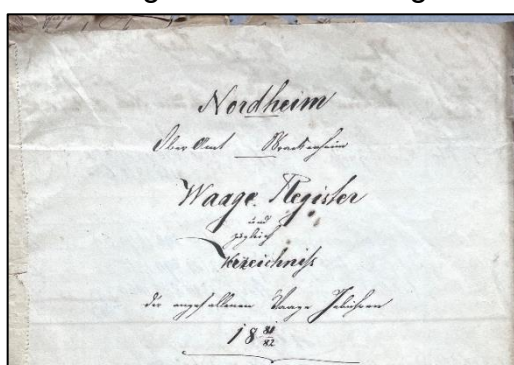 Nordheim
Ober Amt Brackenheim
Waage Register
und
zugleich
Verzeichniß
der angefallenen Waage Gebühren
18 81/82